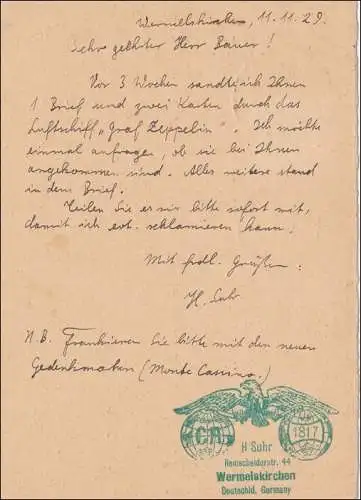 Wermelskirchen, 11.11.29.
Sehr geehrter Herr Bauer!
Vor 3 Wochen sandte ich Ihnen
1 Brief und zwei Karten durch das
Luftschiff „Graf Zeppelin". Ich möchte
einmal anfragen, ob sie bei Ihnen
angekommen sind. Alles weitere stand
in dem Brief.
Teilen Sie es mir bitte sofort mit,
damit ich evt. reklamieren kann.
Mit frdl. Grüßen
H. Suhr
N.B. Frankieren Sie bitte mit den neuen
Gedenkmarken (Monte Cassino.)
1817
H Suhr
Remscheiderstr. 44
Wermelskirchen
Deutschld, Germany